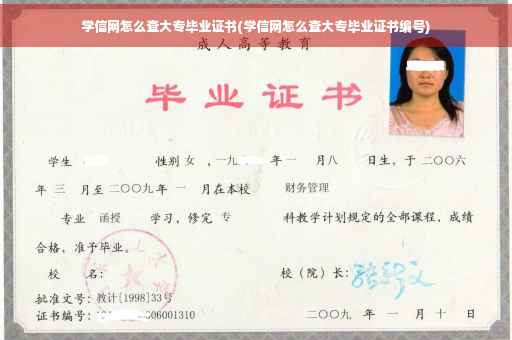 学信网怎么查大专毕业证书(学信网怎么查大专毕业证书编号)
成人高等教育
毕业证书
学生 性别 女 ，一九 年 一 月八 日生，于 二〇〇六
年 三 月至 二〇〇九 年 一 月在本校 财务管理
专业 函授 学习，修完 专 科教学计划规定的全部课程，成绩
合格，准予毕业。
校 名： 校（院）长：
批准文号：教计[1998]33号
证书编号： 06001310 二〇〇九 年 一 月 十 日